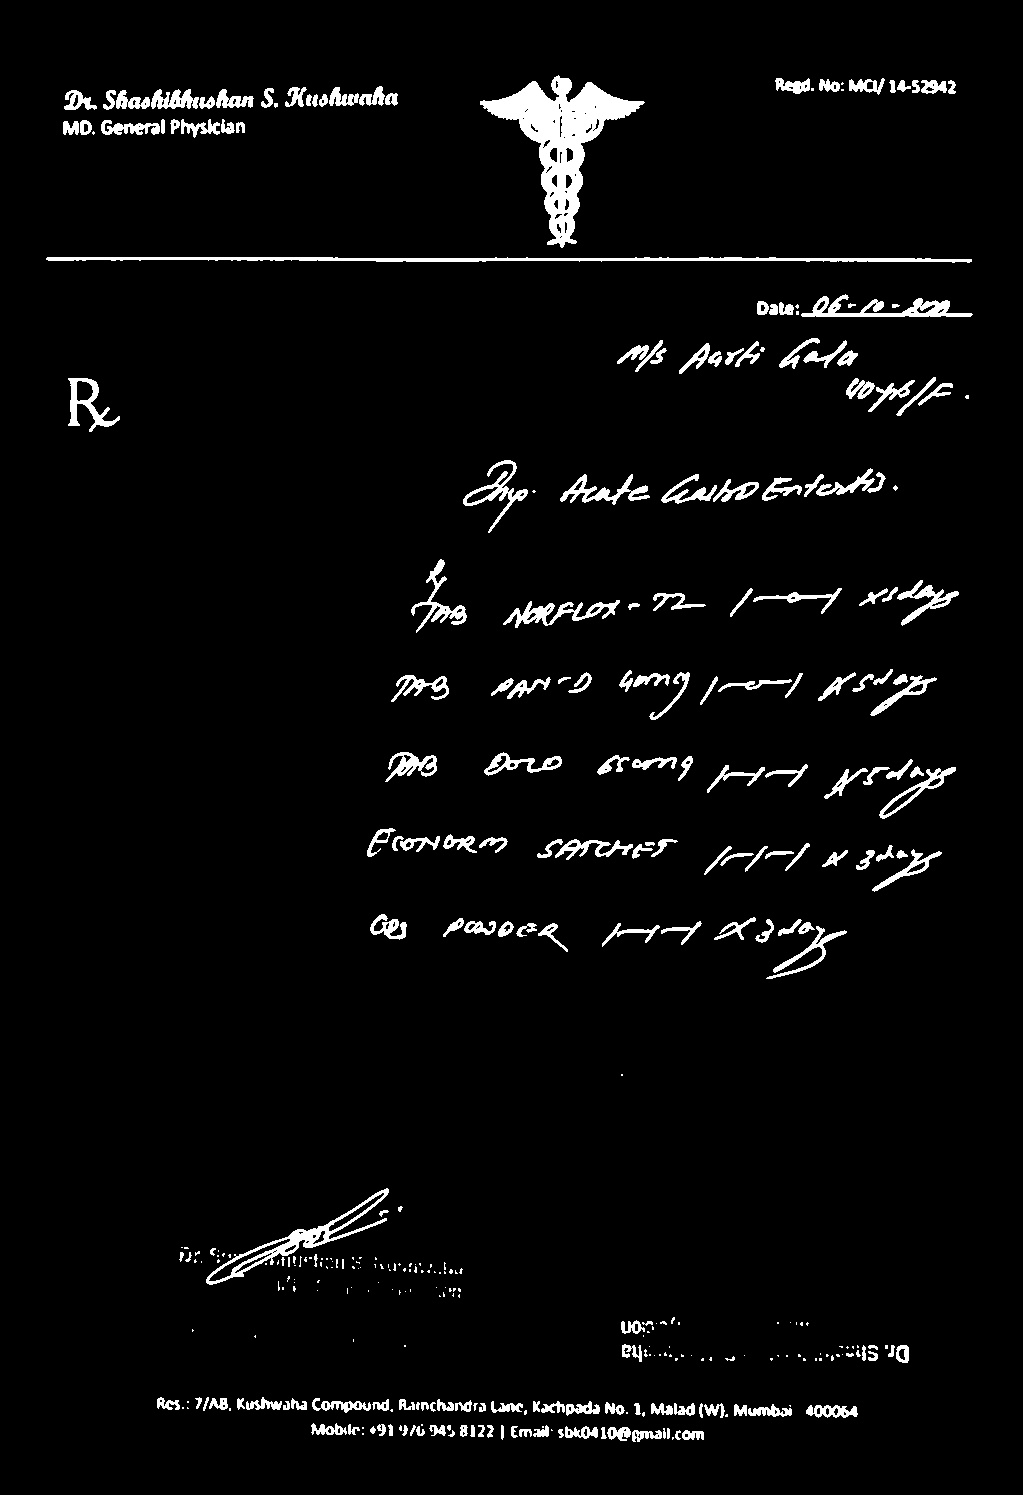 Dr. Shashibhushan S. Kushwaha
MD. General Physician
Regd. No: MCI/ 14-52942
Date: 06-10-
M/s Aarti Gala
40yrs/F.
Rx
Imp. Acute Gastro Enteritis.
Rx
TAB NORFLOX-TZ 1-0-1 x5days
TAB PAN-D 40mg 1-0-1 x5days
TAB DOLO 650mg 1-1-1 x5days
ECONORM SATCHET 1-1-1 x 3days
ORS POWDER 1-1-1 x3days
Dr. S. Kushwaha
Dr. Sha
Res.: 7/AB, Kushwaha Compound, Ramchandra Lane, Kachpada No. 1, Malad (W), Mumbai 400064
Mobile: +91 976 945 8122 | Email: sbk0410@gmail.com